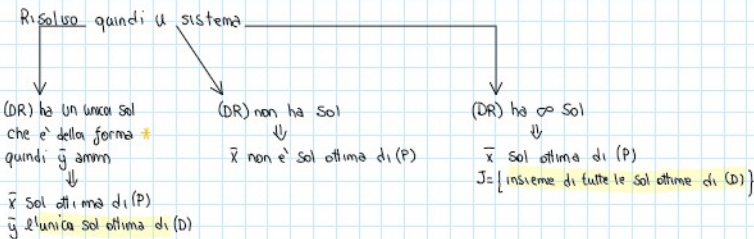 Risolvo quindi il sistema
(DR) ha un unica sol
che e' della forma *
quindi ȳ amm
⇓
x̄ sol ottima di (P)
ȳ l'unica sol ottima di (D)
(DR) non ha sol
⇓
x̄ non e' sol ottima di (P)
(DR) ha ∞ sol
⇓
x̄ sol ottima di (P)
J={insieme di tutte le sol ottime di (D)}